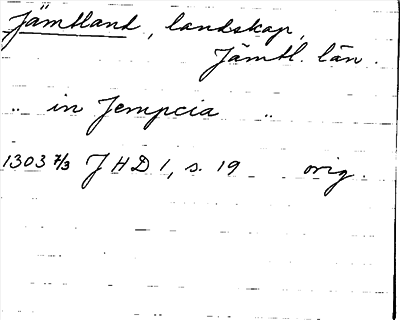 Jämtland, landskap,
Jämtl. län.
„ in Jempcia „
1303 7/3 JHD 1, s. 19 orig.